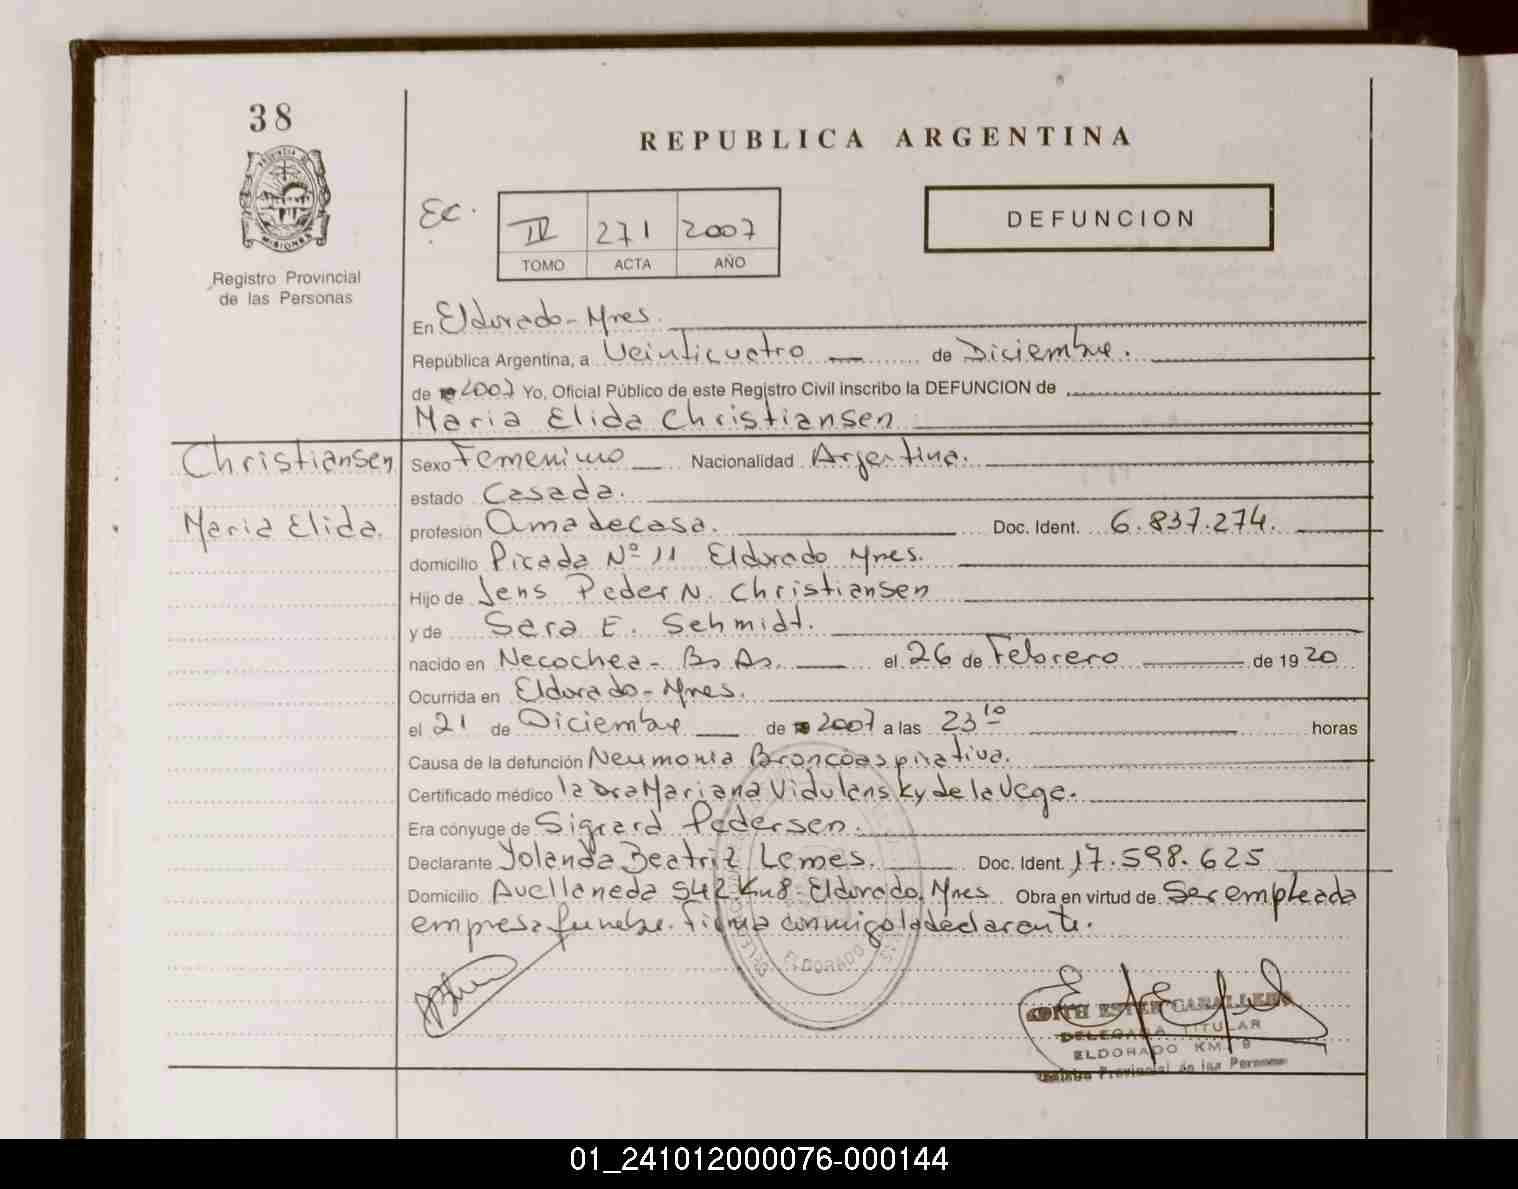 38
REPUBLICA ARGENTINA
PROVINCIA DE MISIONES
Registro Provincial
de las Personas
EC.
IV 271 2007
TOMO ACTA AÑO
DEFUNCION
En Eldorado - Mnes.
República Argentina, a Veinticuatro de Diciembre.
de 2007 Yo, Oficial Público de este Registro Civil inscribo la DEFUNCION de
Maria Elida Christiansen
Christiansen
Maria Elida.
Sexo Femenino Nacionalidad Argentina.
estado Casada.
profesión Ama de casa. Doc. Ident. 6.837.274.
domicilio Picada Nº 11 Eldorado Mnes.
Hijo de Jens Peder N. Christiansen
y de Sara E. Schmidt.
nacido en Necochea - Bs. As. el 26 de Febrero de 1920
Ocurrida en Eldorado - Mnes.
el 21 de Diciembre de 2007 a las 23 10 horas
Causa de la defunción Neumonia Broncoaspirativa.
Certificado médico la Dra Mariana Vidulensky de la Vega.
Era cónyuge de Sigrard Pedersen.
Declarante Yolanda Beatriz Lemes. Doc. Ident. 17.598.625
Domicilio Avellaneda 542 Km 8 - Eldorado, Mnes Obra en virtud de Ser empleada
empresa funebre. firma conmigo la declarante.
ELDORADO
EDITH ESTER CABALLERO
DELEGADA TITULAR
ELDORADO KM 9
Registro Provincial de las Personas
01_241012000076-000144